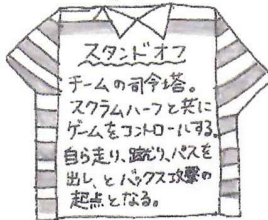 スタンドオフ
チームの司令塔。
スクラムハーフと共に
ゲームをコントロールする。
自ら走り、蹴り、パスを
出し、とバックス攻撃の
起点となる。